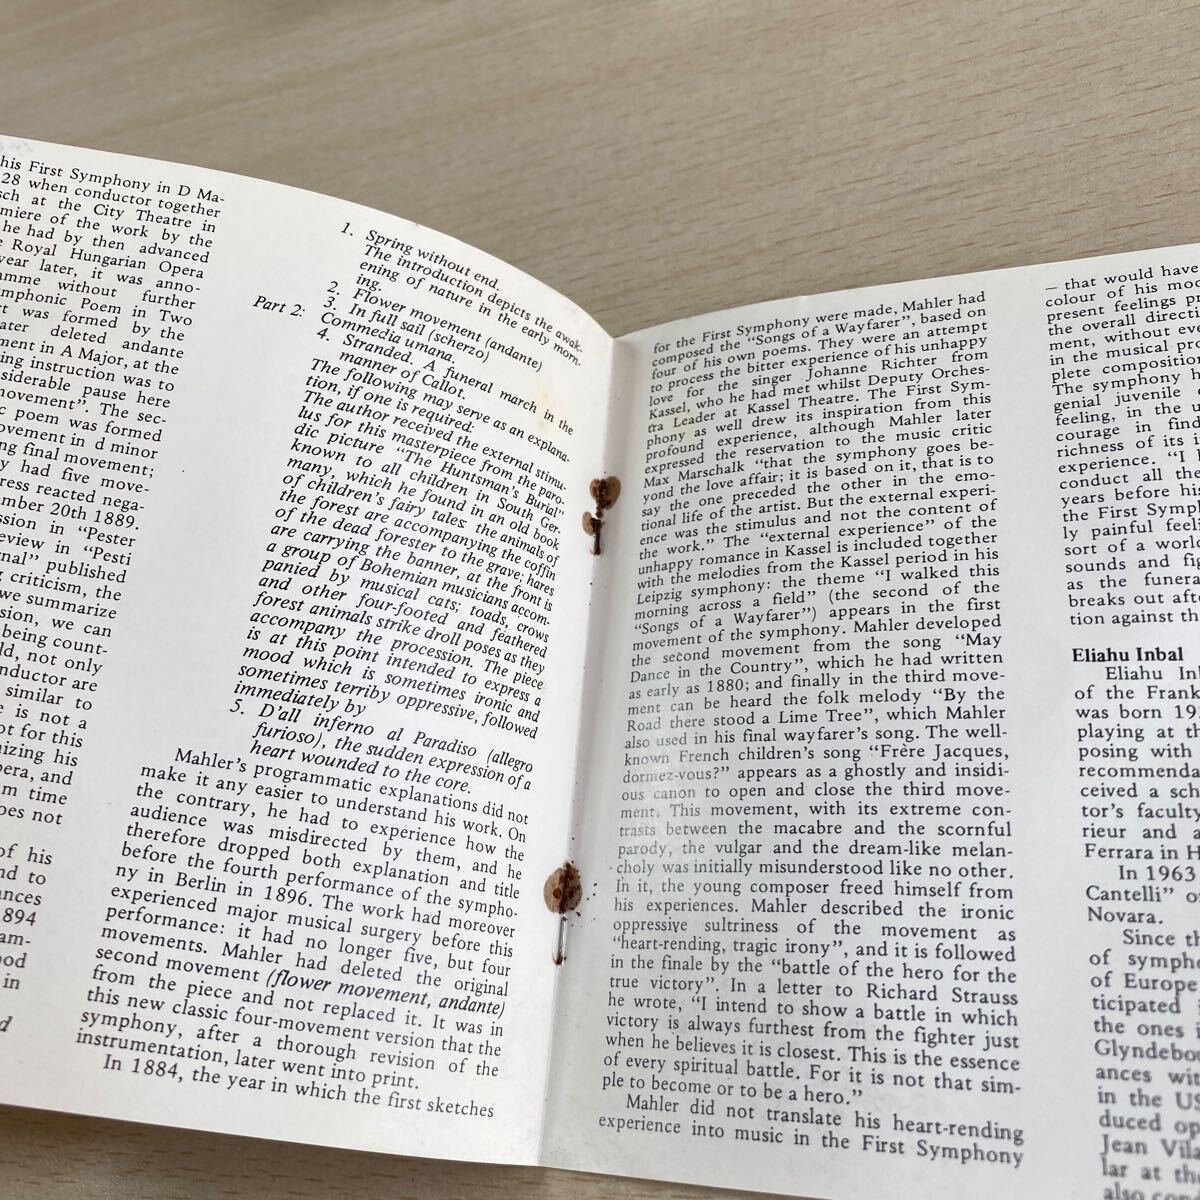 his First Symphony in D Ma-
28 when conductor together
sch at the City Theatre in
miere of the work by the
he had by then advanced
Royal Hungarian Opera
year later, it was anno-
amme without further
mphonic Poem in Two
rt was formed by the
ater deleted andante
ment in A Major, at the
ing instruction was to
siderable pause here
movement". The sec-
c poem was formed
ovement in d minor
ng final movement;
y had five move-
ress reacted nega-
mber 20th 1889.
ssion in "Pester
eview in "Pesti
nal" published
g criticism, the
we summarize
sion, we can
being count-
ld, not only
nductor are
similar to
e is not a
ot for this
izing his
pera, and
m time
oes not
of his
nd to
ances
894
am-
ood
in
d
1. Spring without end.
The introduction depicts the awak-
ening of nature in the early morn-
ing.
2. Flower movement (andante)
3. In full sail (scherzo)
Part 2:
Commedia umana.
4. Stranded. A funeral march in the
manner of Callot.
The following may serve as an explana-
tion, if one is required:
The author received the external stimu-
lus for this masterpiece from the paro-
dic picture "The Huntsman's Burial"
known to all children in South Ger-
many, which he found in an old book
of children's fairy tales: the animals of
the forest are accompanying the coffin
of the dead forester to the grave; hares
are carrying the banner, at the front is
a group of Bohemian musicians accom-
panied by musical cats; toads, crows
and other four-footed and feathered
forest animals strike droll poses as they
accompany the procession. The piece
is at this point intended to express a
mood which is sometimes ironic and
sometimes terriby oppressive, followed
immediately by
5. D'all inferno al Paradiso (allegro
furioso), the sudden expression of a
heart wounded to the core.
Mahler's programmatic explanations did not
make it any easier to understand his work. On
the contrary, he had to experience how the
audience was misdirected by them, and he
therefore dropped both explanation and title
before the fourth performance of the sympho-
ny in Berlin in 1896. The work had moreover
experienced major musical surgery before this
performance: it had no longer five, but four
movements. Mahler had deleted the original
second movement (flower movement, andante)
from the piece and not replaced it. It was in
this new classic four-movement version that the
symphony, after a thorough revision of the
instrumentation, later went into print.
In 1884, the year in which the first sketches
for the First Symphony were made, Mahler had
composed the "Songs of a Wayfarer", based on
four of his own poems. They were an attempt
to process the bitter experience of his unhappy
love for the singer Johanne Richter from
Kassel, who he had met whilst Deputy Orches-
tra Leader at Kassel Theatre. The First Sym-
phony as well drew its inspiration from this
profound experience, although Mahler later
expressed the reservation to the music critic
Max Marschalk "that the symphony goes be-
yond the love affair; it is based on it, that is to
say the one preceded the other in the emo-
tional life of the artist. But the external experi-
ence was the stimulus and not the content of
the work." The "external experience" of the
unhappy romance in Kassel is included together
with the melodies from the Kassel period in his
Leipzig symphony: the theme "I walked this
morning across a field" (the second of the
"Songs of a Wayfarer") appears in the first
movement of the symphony. Mahler developed
the second movement from the song "May
Dance in the Country", which he had written
as early as 1880; and finally in the third move-
ment can be heard the folk melody "By the
Road there stood a Lime Tree", which Mahler
also used in his final wayfarer's song. The well-
known French children's song "Frère Jacques,
dormez-vous?" appears as a ghostly and insidi-
ous canon to open and close the third move-
ment. This movement, with its extreme con-
trasts between the macabre and the scornful
parody, the vulgar and the dream-like melan-
choly was initially misunderstood like no other.
In it, the young composer freed himself from
his experiences. Mahler described the ironic
oppressive sultriness of the movement as
"heart-rending, tragic irony", and it is followed
in the finale by the "battle of the hero for the
true victory". In a letter to Richard Strauss
he wrote, "I intend to show a battle in which
victory is always furthest from the fighter just
when he believes it is closest. This is the essence
of every spiritual battle. For it is not that sim-
ple to become or to be a hero."
Mahler did not translate his heart-rending
experience into music in the First Symphony
– that would have
colour of his moo
present feelings p
the overall directi
ment, without eve
in the musical pro
plete composition
The symphony h
genial juvenile
feeling, in the u
courage in find
richness of its i
experience. "I
conduct all the
years before his
the First Symph
ly painful feel
sort of a world
sounds and fig
as the funera
breaks out afte
tion against th
Eliahu Inbal
Eliahu Inb
of the Frank
was born 19
playing at th
posing with
recommenda
ceived a sch
tor's faculty
rieur and a
Ferrara in H
In 1963
Cantelli" of
Novara.
Since th
of sympho
of Europe
ticipated i
the ones i
Glyndebou
ances wit
in the US
duced op
Jean Vila
lar at the
also con